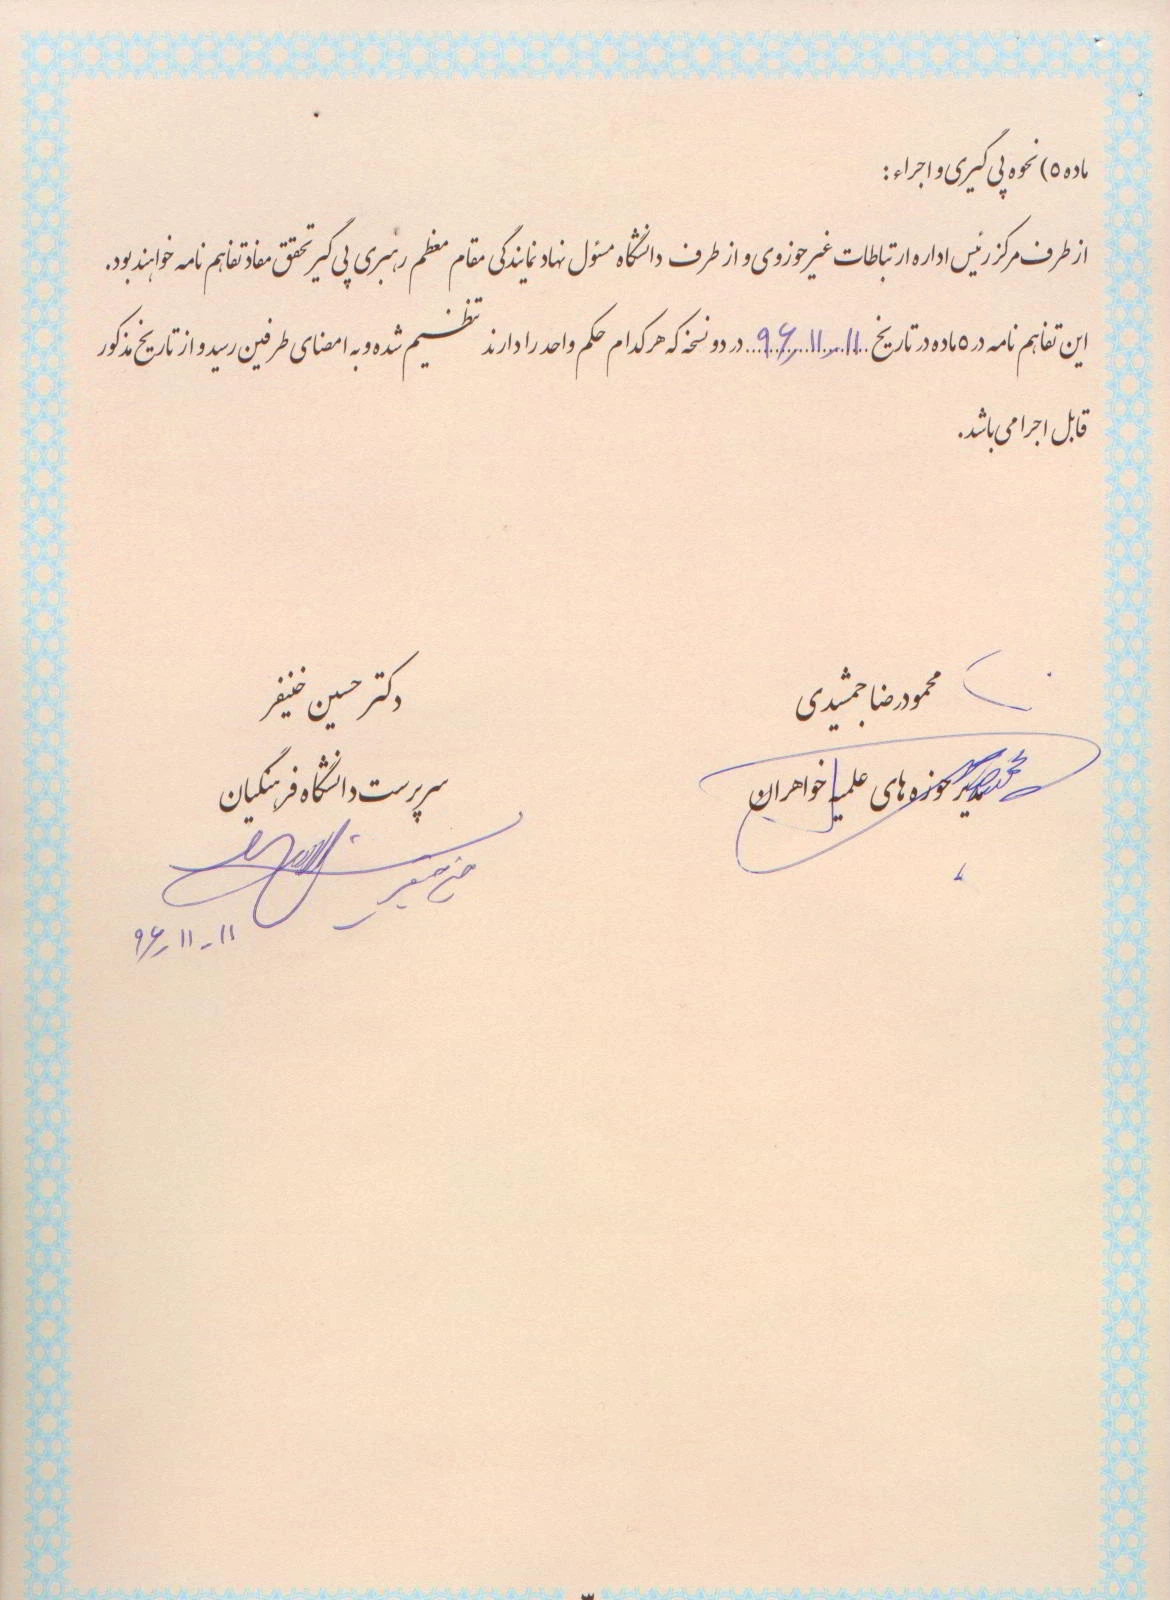 ماده ۵) نحوه پی گیری و اجراء :
از طرف مرکز رئیس اداره ارتباطات غیر حوزوی و از طرف دانشگاه مسئول نهاد نمایندگی مقام معظم رهبری پی گیر تحقق مفاد تفاهم نامه خواهند بود.
این تفاهم نامه در ۵ ماده در تاریخ ۹۶٫۱۱٫۱۱ در دو نسخه که هر کدام حکم واحد را دارند تنظیم شده و به امضای طرفین رسید و از تاریخ مذکور
قابل اجرا می باشد.
محمودرضا جمشیدی
مدیر حوزه های علمیه خواهران
دکتر حسین خنیفر
سرپرست دانشگاه فرهنگیان
۹۶٫۱۱-۱۱
۳